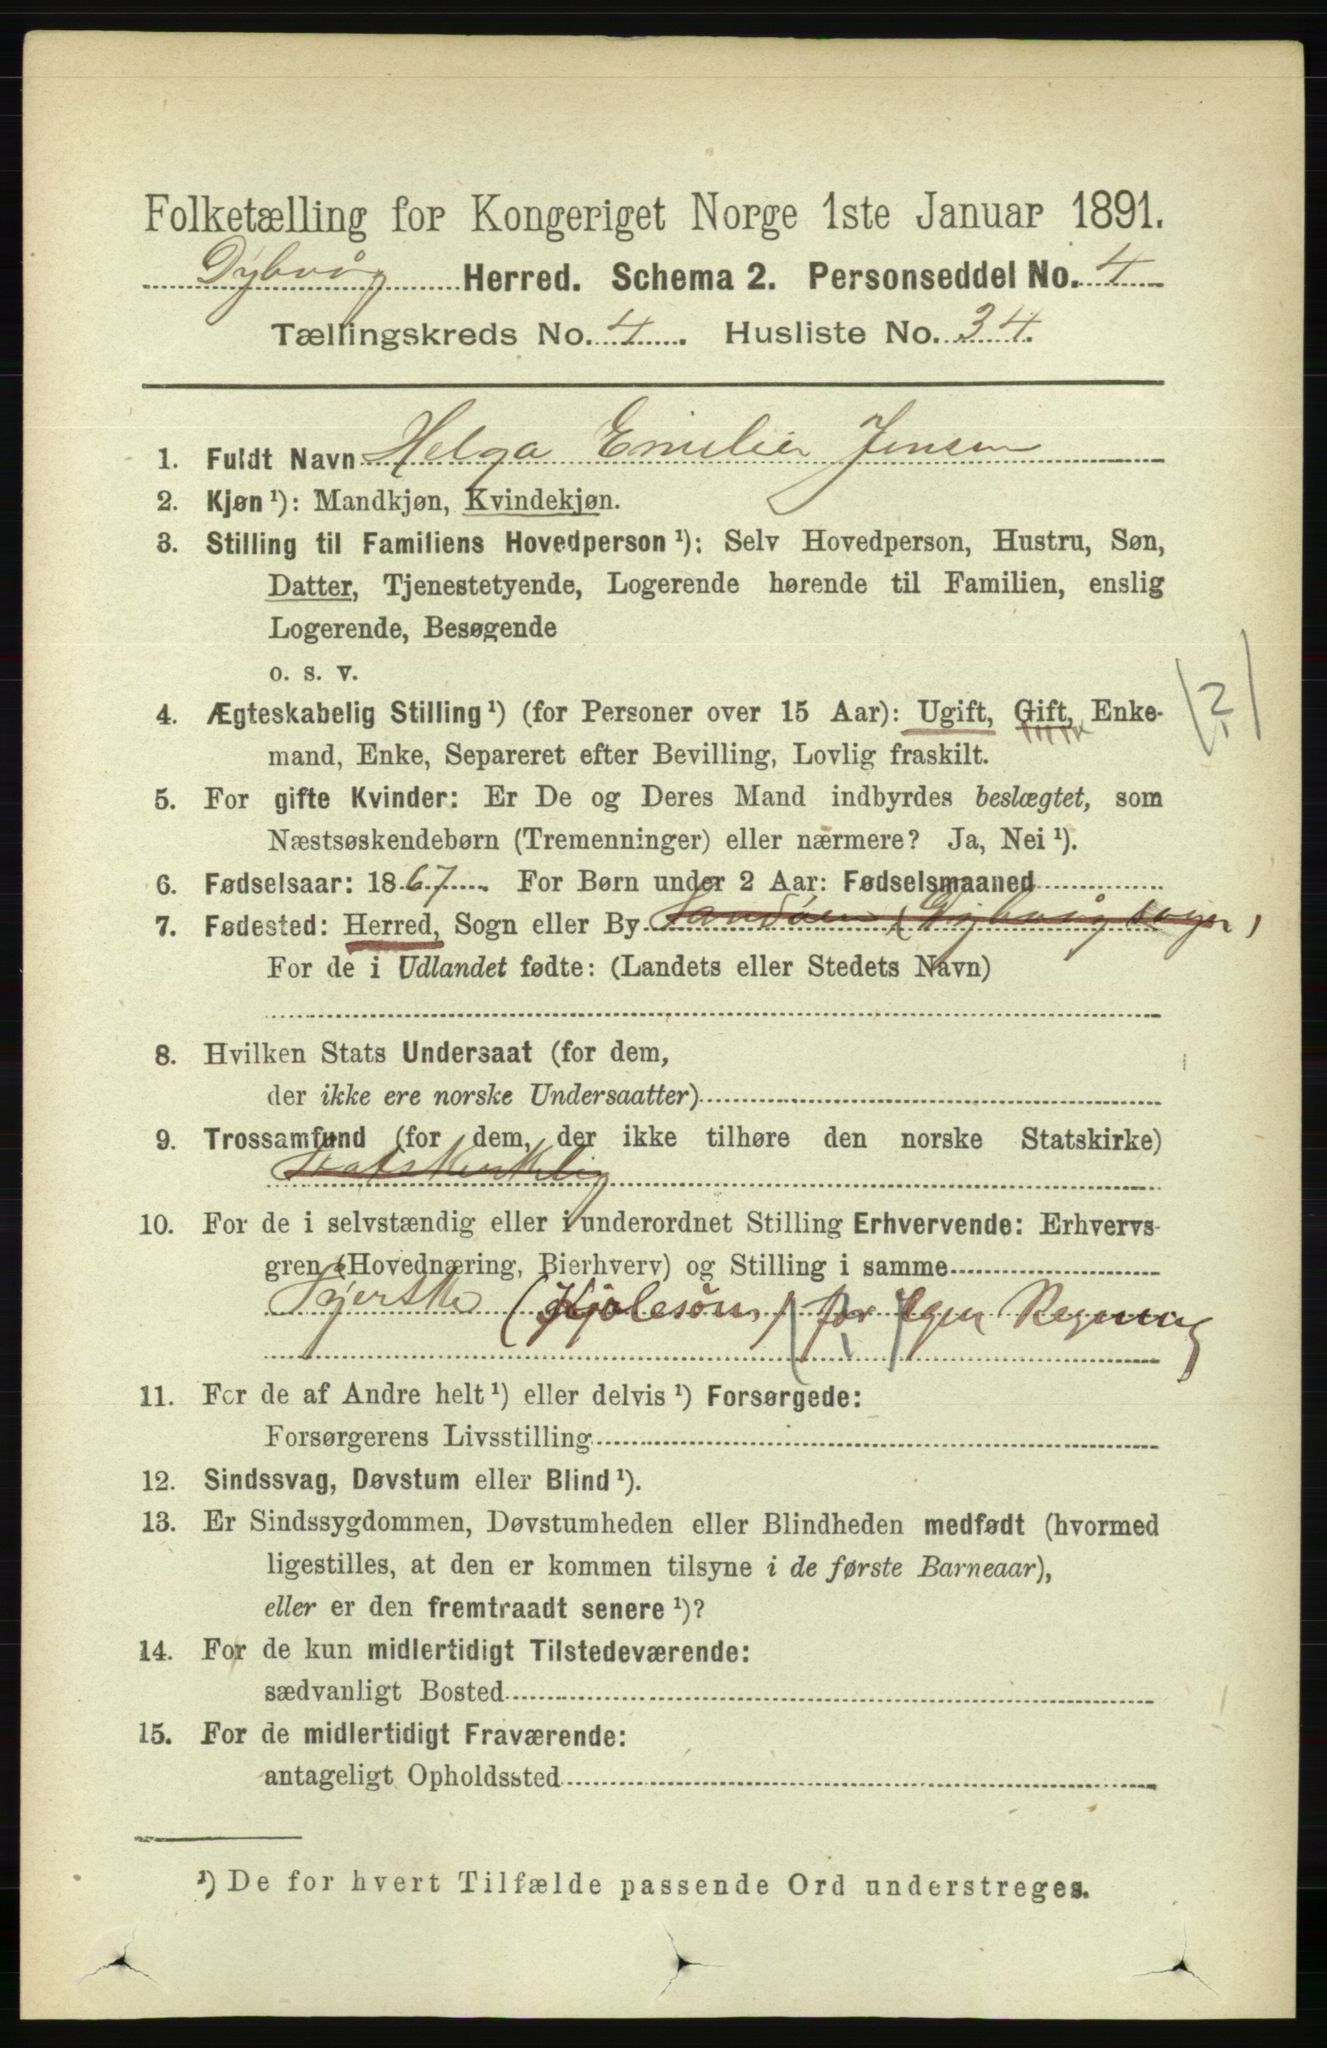 Folketælling for Kongeriget Norge 1ste Januar 1891.
Dybvåg Herred. Schema 2. Personseddel No. 4
Tællingskreds No. 4. Husliste No. 34.
1. Fuldt Navn Helga Emilie Jensen
2. Kjøn ¹): Mandkjøn, Kvindekjøn.
3. Stilling til Familiens Hovedperson ¹): Selv Hovedperson, Hustru, Søn,
Datter, Tjenestetyende, Logerende hørende til Familien, enslig
Logerende, Besøgende
o. s. v.
4. Ægteskabelig Stilling ¹) (for Personer over 15 Aar): Ugift, Gift, Enke-
2
mand, Enke, Separeret efter Bevilling, Lovlig fraskilt.
5. For gifte Kvinder: Er De og Deres Mand indbyrdes beslægtet, som
Næstsøskendebørn (Tremenninger) eller nærmere? Ja, Nei ¹).
6. Fødselsaar: 1867. For Børn under 2 Aar: Fødselsmaaned
7. Fødested: Herred, Sogn eller By Sandøen (Dybvåg Sogn)
For de i Udlandet fødte: (Landets eller Stedets Navn)
8. Hvilken Stats Undersaat (for dem,
der ikke ere norske Undersaatter)
9. Trossamfund (for dem, der ikke tilhøre den norske Statskirke)
Statskirkelig
10. For de i selvstændig eller i underordnet Stilling Erhvervende: Erhvervs-
gren (Hovednæring, Bierhverv) og Stilling i samme
Syerske (Kjolesøm) for egen Regning
11. For de af Andre helt ¹) eller delvis ¹) Forsørgede:
Forsørgerens Livsstilling
12. Sindssvag, Døvstum eller Blind ¹).
13. Er Sindssygdommen, Døvstumheden eller Blindheden medfødt (hvormed
ligestilles, at den er kommen tilsyne i de første Barneaar),
eller er den fremtraadt senere ¹)?
14. For de kun midlertidigt Tilstedeværende:
sædvanligt Bosted
15. For de midlertidigt Fraværende:
antageligt Opholdssted
¹) De for hvert Tilfælde passende Ord understreges.